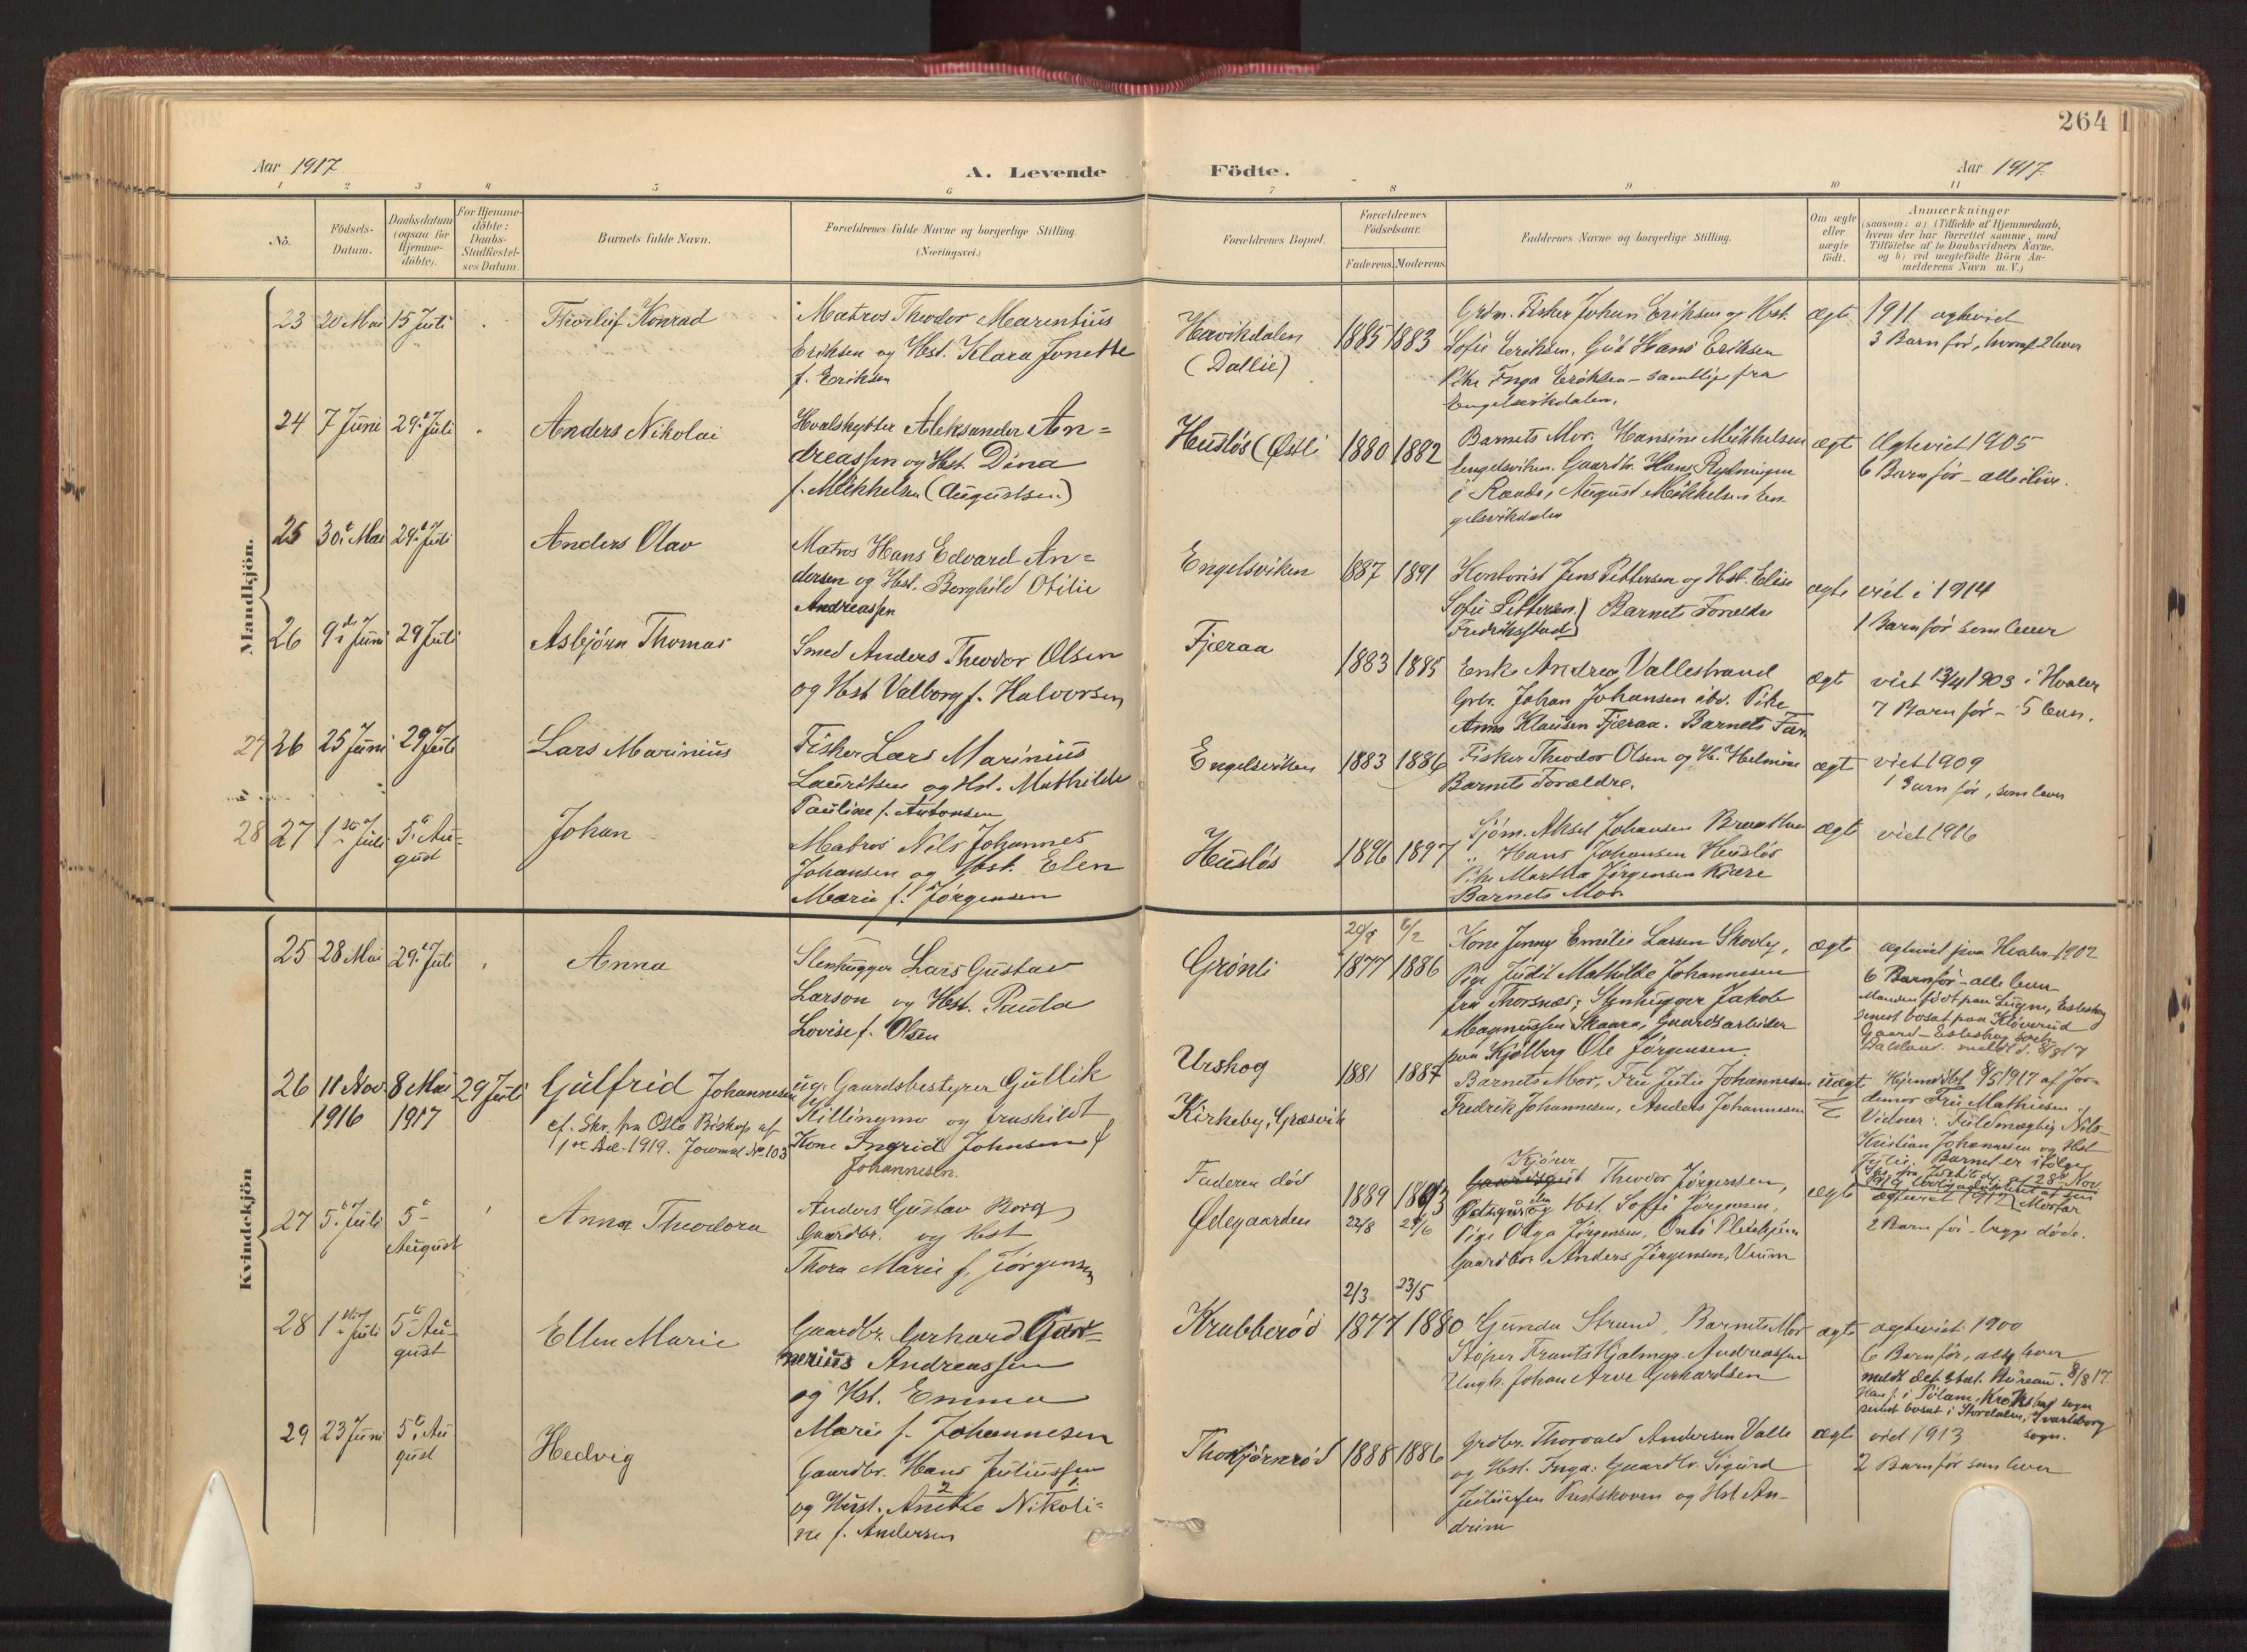 264
Aar 1917
A. Levende
Födte.
Aar 1917
1 2 3 4 5 6 7 8 9 10 11
No.
Födsels-
Datum.
Daabsdatum
(ogsaa for
Hjemme-
döbte).
For Hjemme-
döbte:
Daabs-
Stadfæstel-
ses Datum.
Barnets fulde Navn.
Forældrenes fulde Navne og borgerlige Stilling
(Næringsvei.)
Forældrenes Bopæl.
Forældrenes
Födselsaar.
Faderens. Moderens.
Faddernes Navne og borgerlige Stilling.
Om ægte
eller
uægte
födt.
Anmærkninger
(saasom: a) i Tilfælde af Hjemmedaab,
hvem der har forrettet samme, med
Tilföielse af to Daabsvidners Navne,
og b) ved uægtefödte Börn An-
melderens Navn m. V.)
Mandkjön.
23 20 Mai 15 Juli
Thorleif Konrad
Matros Theodor Marentius
Eriksen og Hst. Klara Jonette
f. Eriksen
(Dallie)
1885 1883
Grdm. Fisker Johan Eriksen og Hst.
Sofie Eriksen, Gut Hans Eriksen
Pike Inga Eriksen – samtlige fra
Engelsvikdalen.
ægte
1911 ægteviet
3 Barn før, hvoraf 2 lever
24 7 Juni 29 Juli
Anders Nikolai
Hvalskytter Aleksander An=
dreassen og Hst. Dina
f. Mikkelsen (Augustsen)
Husløs (Østli
1880 1882
Barnets Mor. Hansine Mikkelsen
Engelsviken. Gaardbr. Hans Rydningen
i Raade, August Mikkelsen En
gelsvikdalen
ægt
Ægteviet 1905
6 Barn før – alle ilive.
25 30 Mai 29 Juli
Anders Olav
Matros Hans Edvard An=
dersen og Hst. Borghild Otilie
Andreassen
Engelsviken
1887 1891
Kontorist Jens Pettersen og Hst. Elise
Sofie Pettersen Barnets Forældre
Fredriksstad
ægte
viet i 1914
1 Barn før som lever
26 9 Juni 29 Juli
Asbjörn Thomas
Smed Anders Theodor Olsen
og Hst Valborg f. Halvorsen
Fjæraa
1883 1885
Enke Andrea Vallestrand
Grbr. Johan Johansen ibd. Pike
Anna Klausen Fjæraa. Barnets Far
ægt
viet 13/4 1903 i Hvaler
7 Barn før – 5 lever.
27 26 25 Juni 29 Juli
Lars Marinius
Fisker Lars Marinius
Lauritsen og Hst. Mathilde
Pauline f. Antonsen
Engelsviken
1883 1886
Fisker Theodor Olsen og H. Helmine
Barnets Forældre.
ægt
viet 1909
1 Barn før, som lever
28 27 1 Juli 5 Au-
gust
Johan
Matros Nils Johannes
Johansen og Hst. Elen
Marie f. Jörgensen
Husløs
1896 1897
Sjöm. Aksel Johansen
" Hans Johansen Husløs
Pike Martha Jörgensen Kjære
Barnets Mor.
ægte
viet 1916
Kvindekjön
25 28 Mai 29 Juli
Anna
Stenhugger Lars Gustav
Larson og Hst. Paula
Lovise f. Olsen
Grönli
1877 1886
Kone Jenny Emilie Larsen Skovly,
Pige Judit Mathilde Johannesen
fra Thorsnæs; Stenhugger Jakob
Magnussen Skaara, Gaardsarbeider
paa Kjölberg Ole Jörgensen.
ægte
ægteviet paa Hvaler 1902
6 Barn før – alle lever
26 11 Nov. 1916 8 Mai 1917 29 Juli
Gulfrid Johannesen
cf. Skr. fra Oslo Biskop af
1 Dec. 1919. Journal No 103
ug. Gaardsbestyrer Gullik
Killingmo og fraskildt
Kone Ingrid Johnsen f
Johannesen.
Urskog
Kirkeby, Græsvik
1881 1887
Barnets Mor, Fru Julie Johannesen
Fredrik Johannesen, Anders Johannesen
uægt
Hjemmedöbt 8/5 1917 af Jor=
demor Fru Mathiesen.
Vidner: Fuldmægtig Nils
Kristian Johannesen og Hst
Julie. Barnet er ifölge
27 5 Juli 5 August
Anna Theodora
Anders Gustav Borg
Gaardbr. og Hst
Thora Marie f. Jörgensen
Faderen död
Ödegaarden
1889 1893
22/8
Theodor Jörgensen,
og Hst. Soffi Jörgensen,
Pige Olga Jörgensen, Önö Pleiehjem
Gaardbr. Anders Jörgensen, Uum
ægte
ægteviet 1912
2 Barn før – begge döde.
28 1 Juli 5 Au-
gust
Ellen Marie
Gaardbr. Gerhard Gun-
nerius Andreassen
og Hst. Emma
Marie f. Johannesen
Krabberöd
2/3 23/5
1877 1880
Gunda Strand, Barnets Mor
Stöper Frants Hjalmar Andreassen
Ungk. Johan Arve Gerhardsen
ægte
ægteviet 1900
6 Barn før, alle lever
29 23 Juni 5 Au
gust
Hedvig
Gaardbr. Hans Juliussen
og Hust. Anette Nikoli=
ne f. Andersen
Thorbjörnröd
1888 1886
Grdbr. Thorvald Andersen Valle
og Hst. Inga: Gaardbr. Sigurd
Juliussen Prestskoven og Hst An-
drine
ægte
viet 1913
2 Barn før som lever